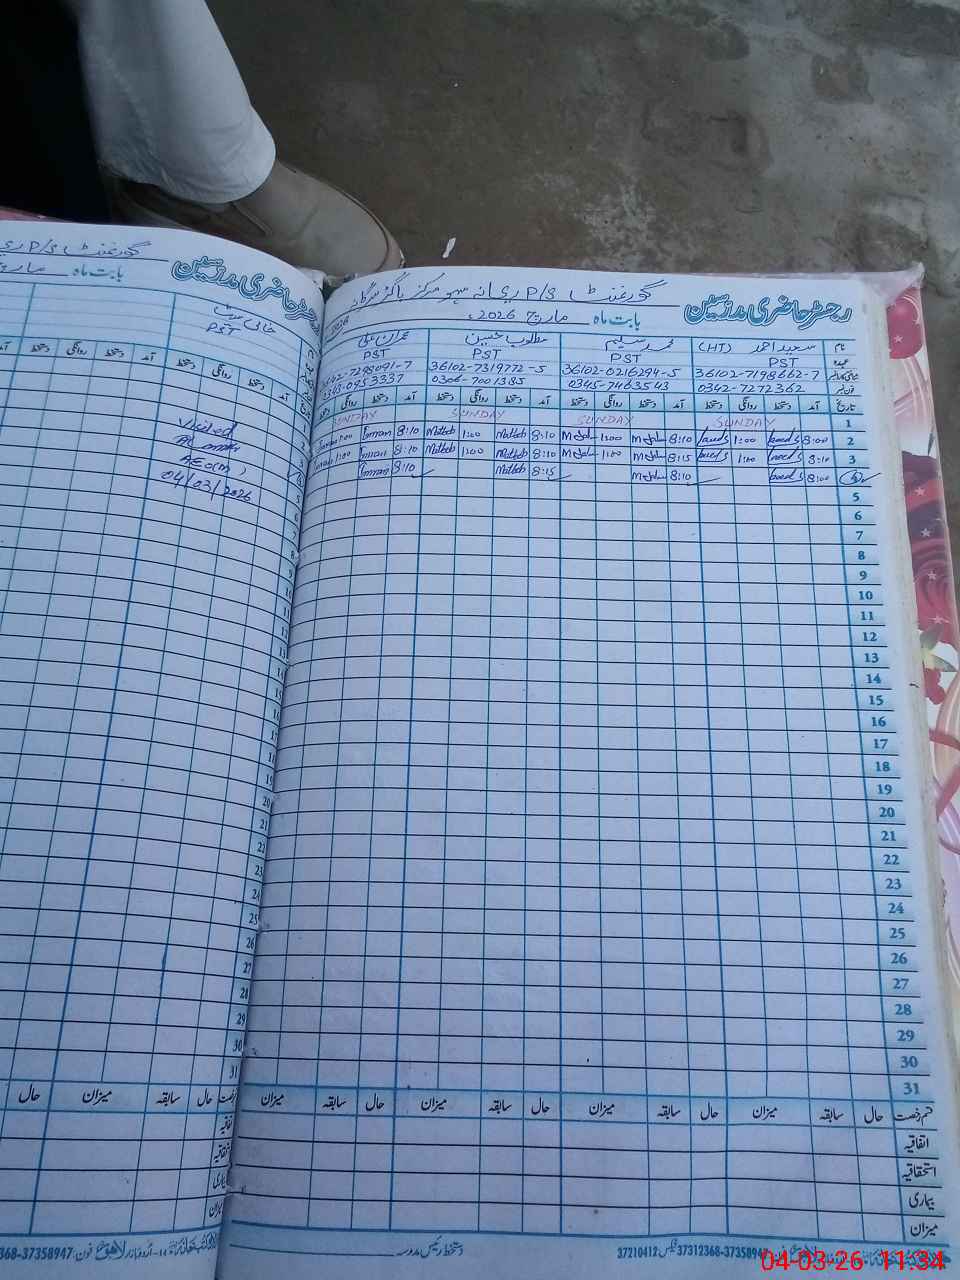 رجسٹر حاضری مدرسین
گورنمنٹ P/S
بابت ماہ مارچ 2026ء
نام
سعید احمد (HT)
محمد سلیم
مطلوب حسین
عمران علی
عہدہ
PST
PST
PST
PST
36102-7198662-7
36102-0216294-5
36102-7319772-5
7298091-7
0342-7272362
0345-7463543
0306-7001385
0343-0953337
تاریخ
آمد دستخط روانگی دستخط آمد دستخط روانگی دستخط آمد دستخط روانگی دستخط آمد دستخط روانگی
1 SUNDAY SUNDAY SUNDAY SUNDAY
2 8:00 1:00 8:10 1:00 8:10 Matlob 1:00 Matlob 8:10 Imran 1:00
3 8:10 1:00 8:15 1:00 8:10 Matlob 1:00 Matlob 8:10 Imran 1:00
4 8:00 8:10 8:15 Matlob 8:10 Imran
5
6
7
8
9
10
11
12
13
14
15
16
17
18
19
20
21
22
23
24
25
26
27
28
29
30
31
قسم رخصت حال سابقہ میزان حال سابقہ میزان حال سابقہ میزان حال سابقہ میزان
اتفاقیہ
استحقاقیہ
بیماری
میزان
دستخط رئیس مدرسہ
فون: 37312368-37358947 فیکس: 37210412
رجسٹر حاضری مدرسین
گورنمنٹ P/S
بابت ماہ مارچ
PST
آمد دستخط روانگی دستخط
Visited
AEO(M)
04/03/2026
حال سابقہ میزان حال
لاہور فون: 368-37358947
04-03-26 11:34